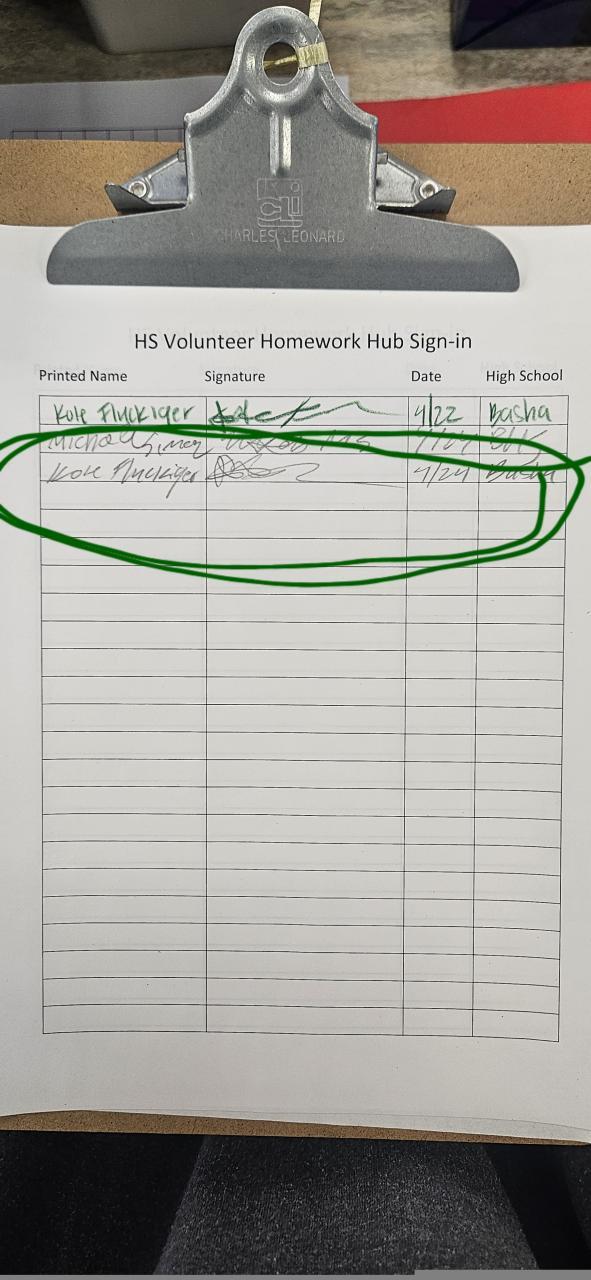 CLi
CHARLES LEONARD
HS Volunteer Homework Hub Sign-in
Printed Name Signature Date High School
Kole Fluckiger 4/22 Basha
4/24
Kole Fluckiger 4/24 Basha